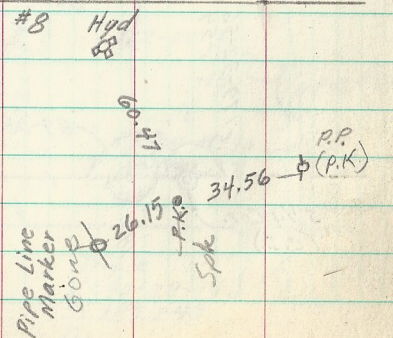 #8
Hyd
41.09
P.P.
(P.K.)
34.56
26.15
P.K.
Spk
Pipe Line
Marker
Gone